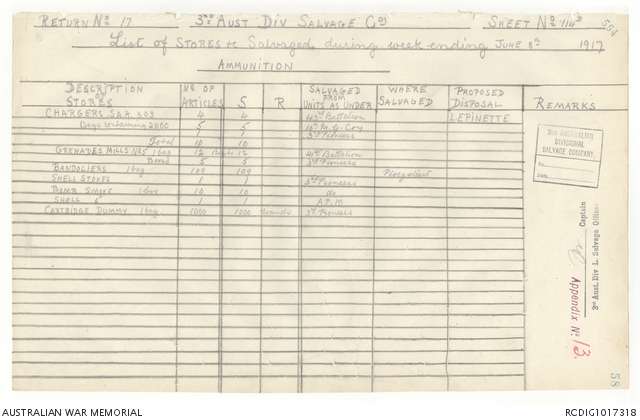 RETURN No 17 3RD AUST DIV SALVAGE Coy SHEET No 114
List of STORES &c Salvaged during week ending JUNE 8th 1917
AMMUNITION
DESCRIPTION OF STORES No OF ARTICLES S R SALVAGED FROM UNITS AS UNDER WHERE SALVAGED PROPOSED DISPOSAL REMARKS
CHARGERS S.A.A. 303 4 4 Battalion LEPINETTE
Bags containing 2000 5 5 M.G. Coy
1 1 3rd Pioneers
Total 10 10
GRENADES MILLS No5 1 box 12 12 Battalion
5 5 3rd Pioneers
BANDOLIERS 1 bag 109 109 Ploegsteert
SHELL STOKES 1 1 3rd Pioneers
1 box 10 10 do
SHELL 1 1 A.P.M.
CARTRIDGE DUMMY 1 bag 1000 1000 3rd Pioneers
3RD AUSTRALIAN
DIVISIONAL
SALVAGE COMPANY.
No.
Date
Captain
3rd Aust. Div L. Salvage Officer
Appendix No 13.
58
AUSTRALIAN WAR MEMORIAL RCDIG1017318